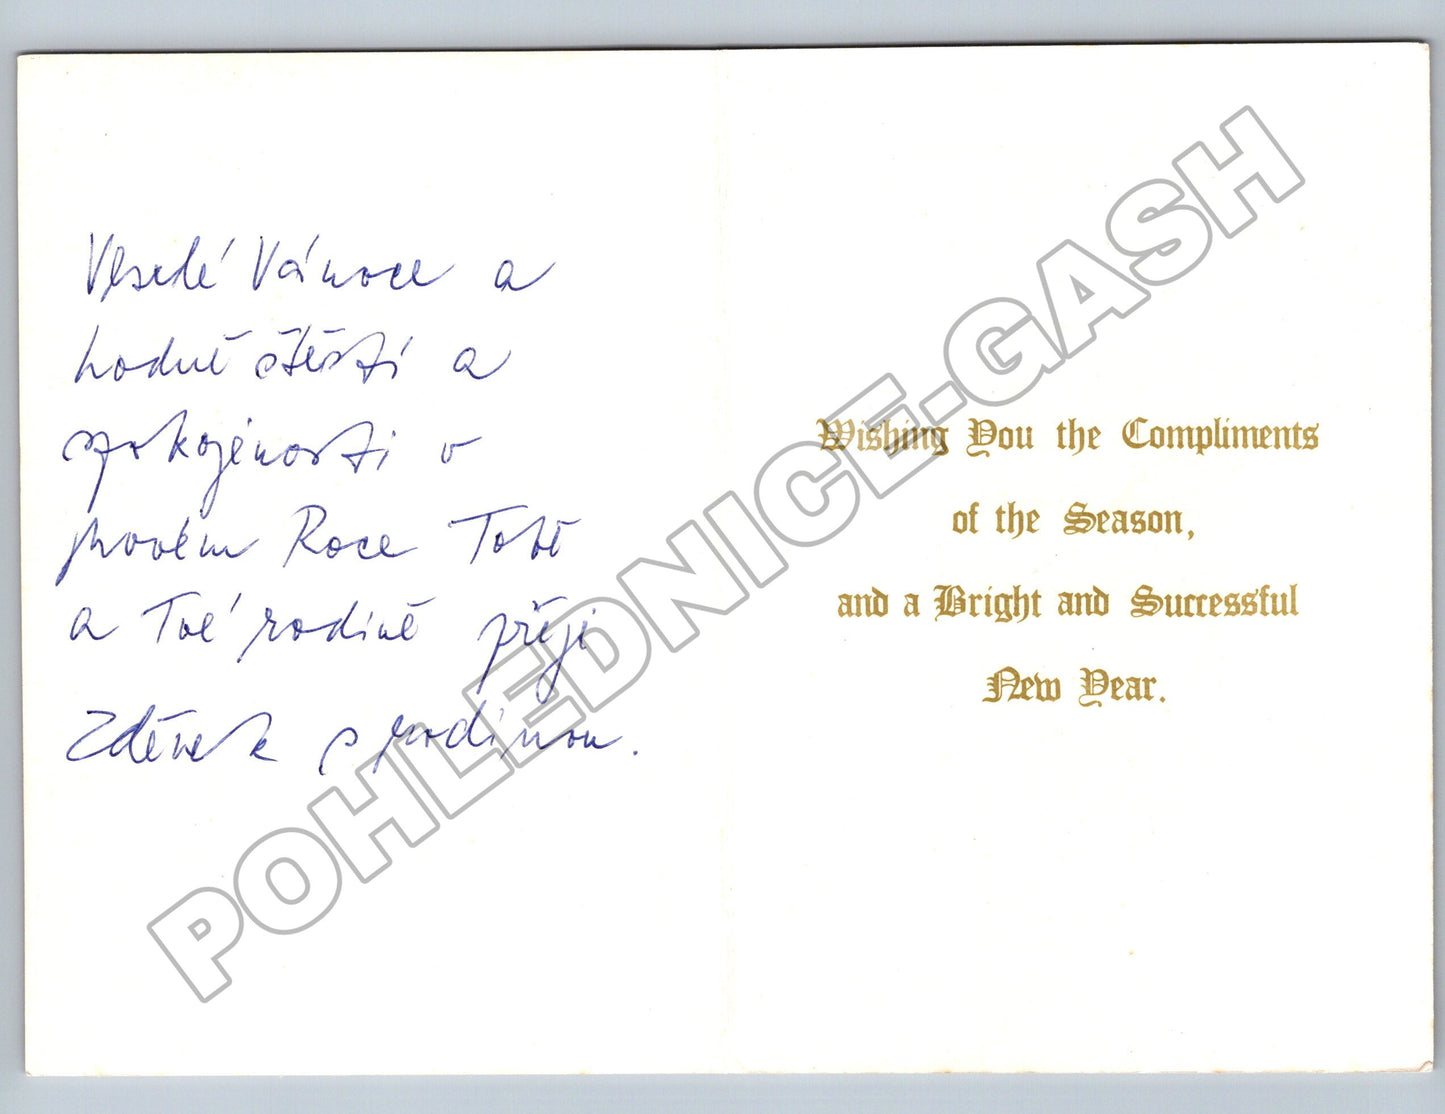 Veselé Vánoce a
hodně štěstí a
spokojenosti v
novém Roce Tobě
a Tvé rodině přeji
Zdeněk s rodinou.
Wishing You the Compliments
of the Season,
and a Bright and Successful
New Year.
POHLEDNICE.GASH